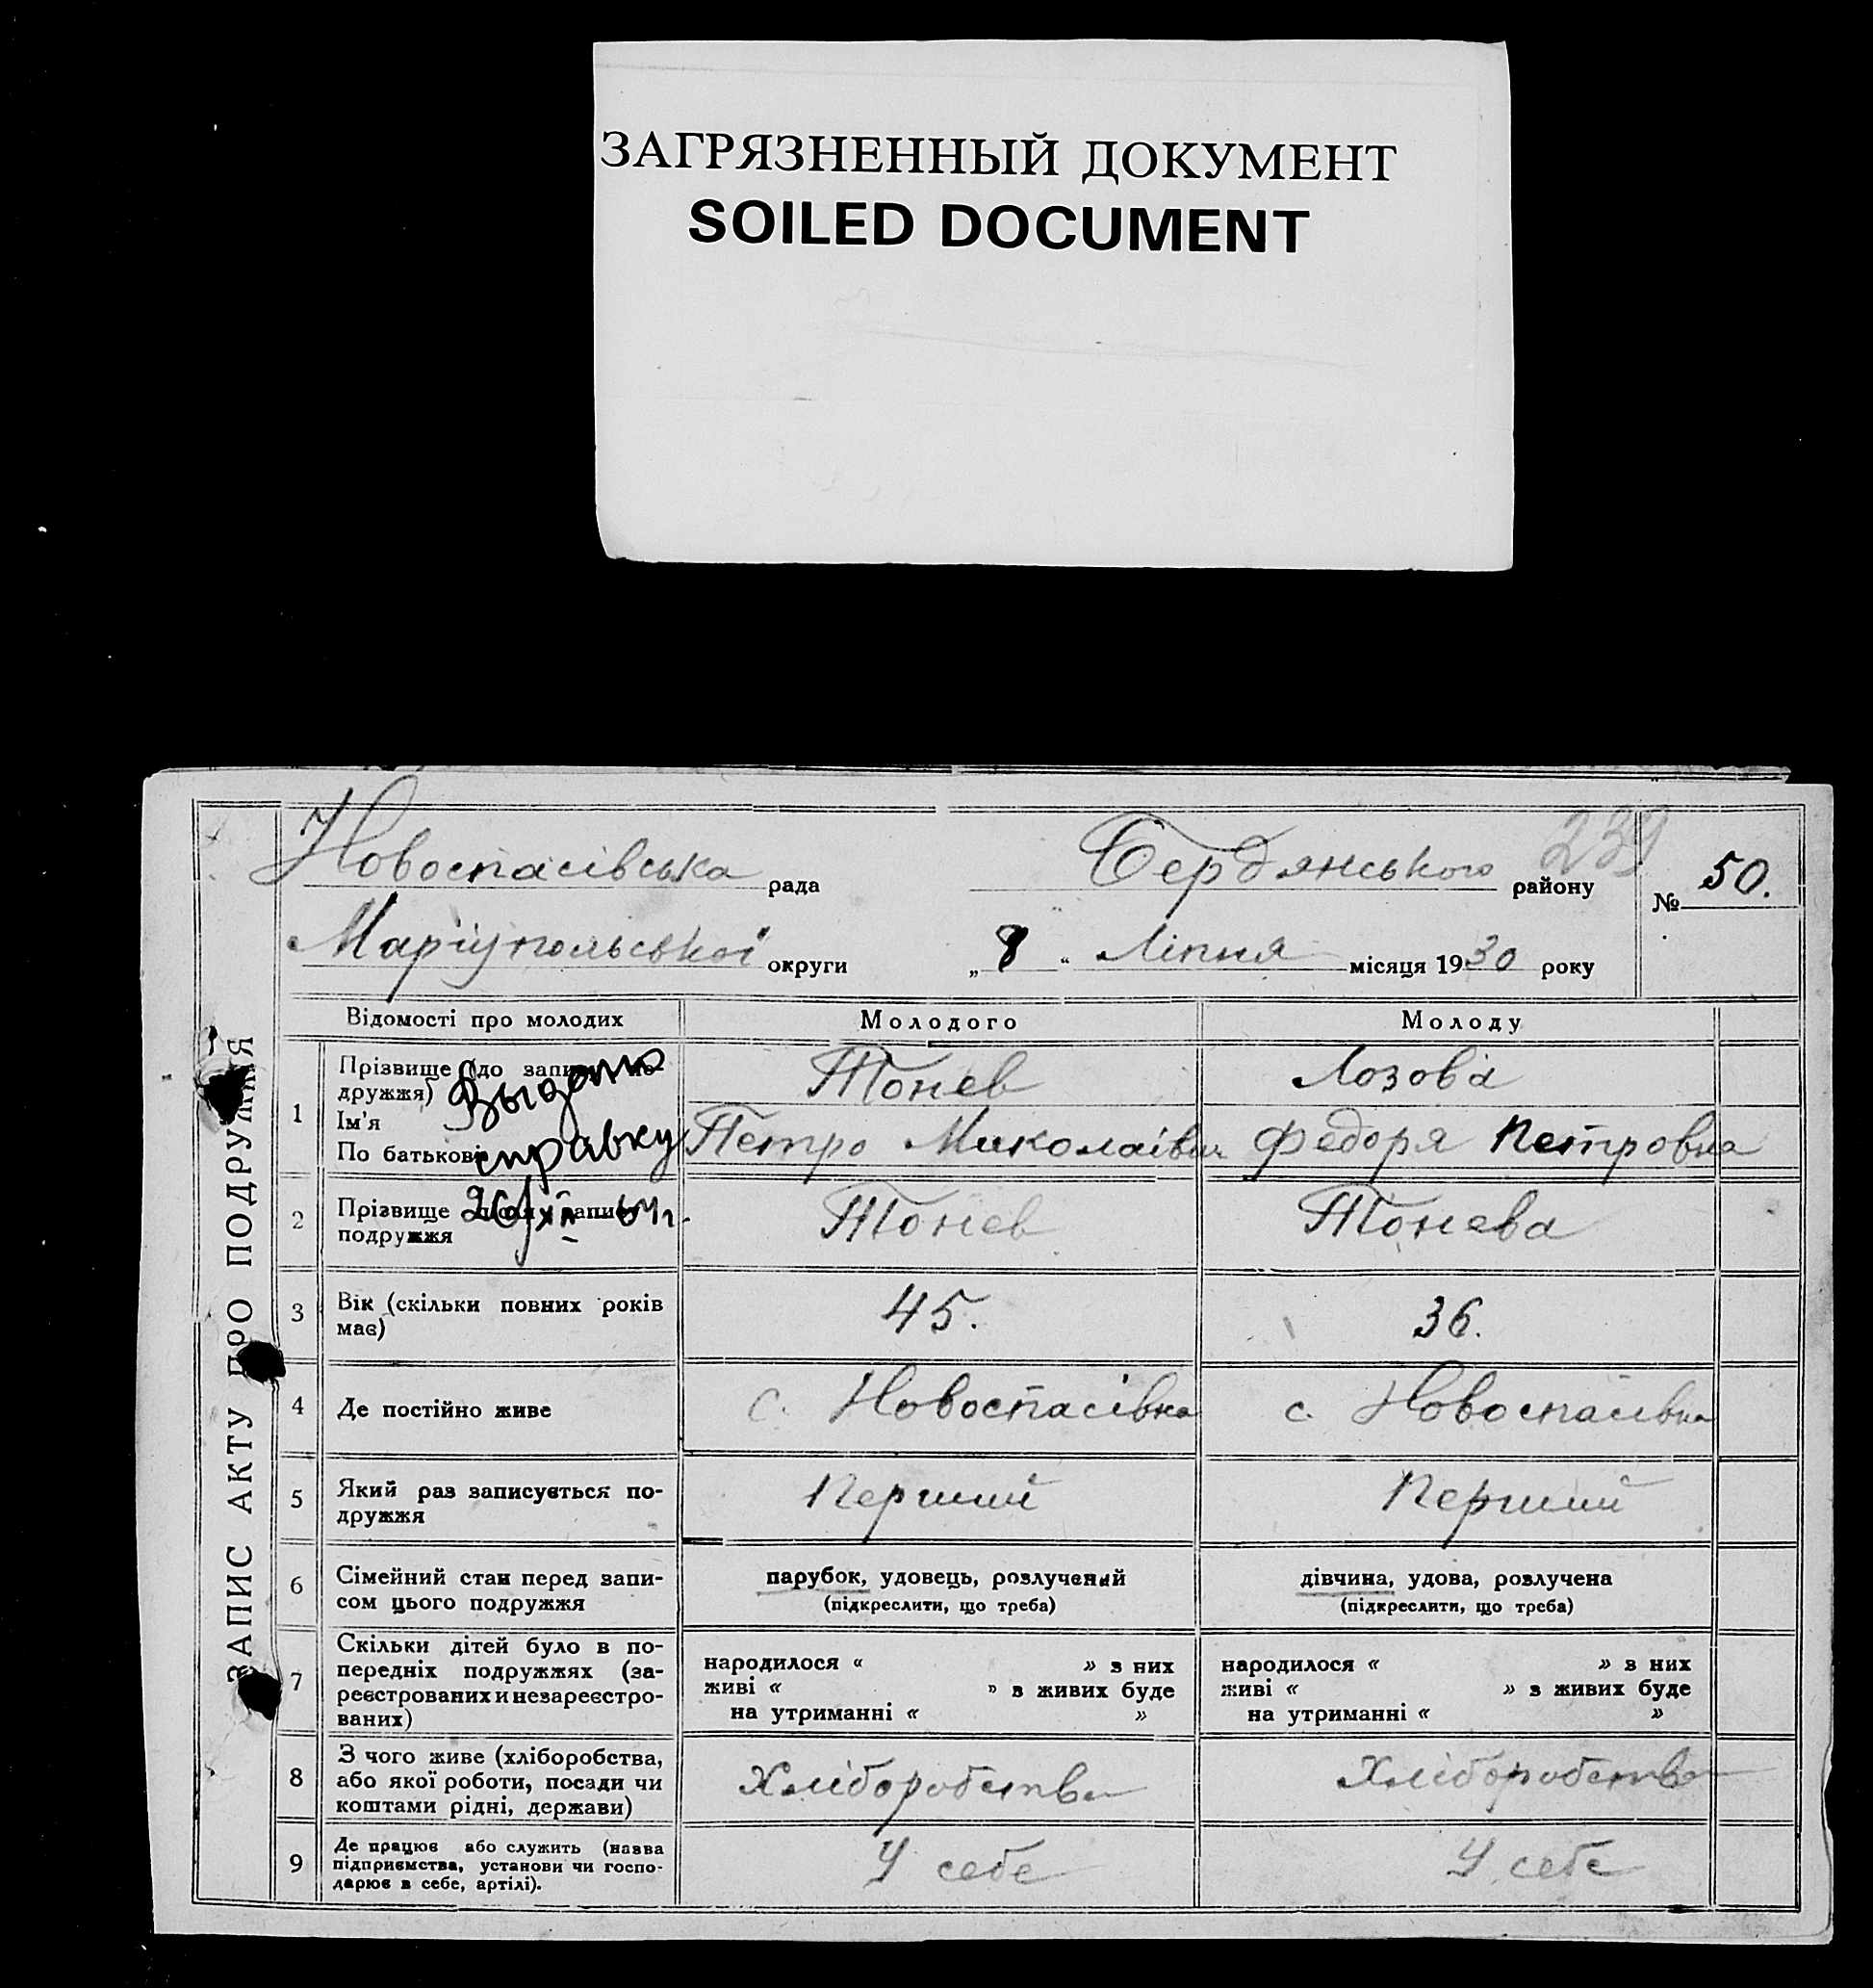 ЗАГРЯЗНЕННЫЙ ДОКУМЕНТ
SOILED DOCUMENT
239
Новоспасівська рада Бердянського району № 50.
Маріупольської округи „ 8 “ Ліпня місяця 1930 року
ЗАПИС АКТУ ПРО ПОДРУЖЖЯ
Відомості про молодих Молодого Молоду
1 Прізвище (до запису по-
дружжя) Тонев Лозова
Ім'я
По батькові Петро Миколаівич Федоря Петровна
Выдано
справку
26/XII 64 г.
2 Прізвище після запису
подружжя Тонев Тонева
3 Вік (скільки повних років
має) 45. 36.
4 Де постійно живе с. Новоспасівка с. Новоспасівка
5 Який раз записується по-
дружжя Перший Перший
6 Сімейний стан перед запи-
сом цього подружжя
парубок, удовець, розлучений
(підкреслити, що треба)
дівчина, удова, розлучена
(підкреслити, що треба)
7 Скільки дітей було в по-
передніх подружжях (за-
реєстрованих и незареєстро-
ваних)
народилося « » з них
живі « » з живих буде
на утриманні « »
народилося « » з них
живі « » з живих буде
на утриманні « »
8 З чого живе (хліборобства,
або якої роботи, посади чи
коштами рідні, держави)
Хліборобства Хліборобства
9 Де працює або служить (назва
підприємства, установи чи госпо-
дарює в себе, артілі).
У себе У себе